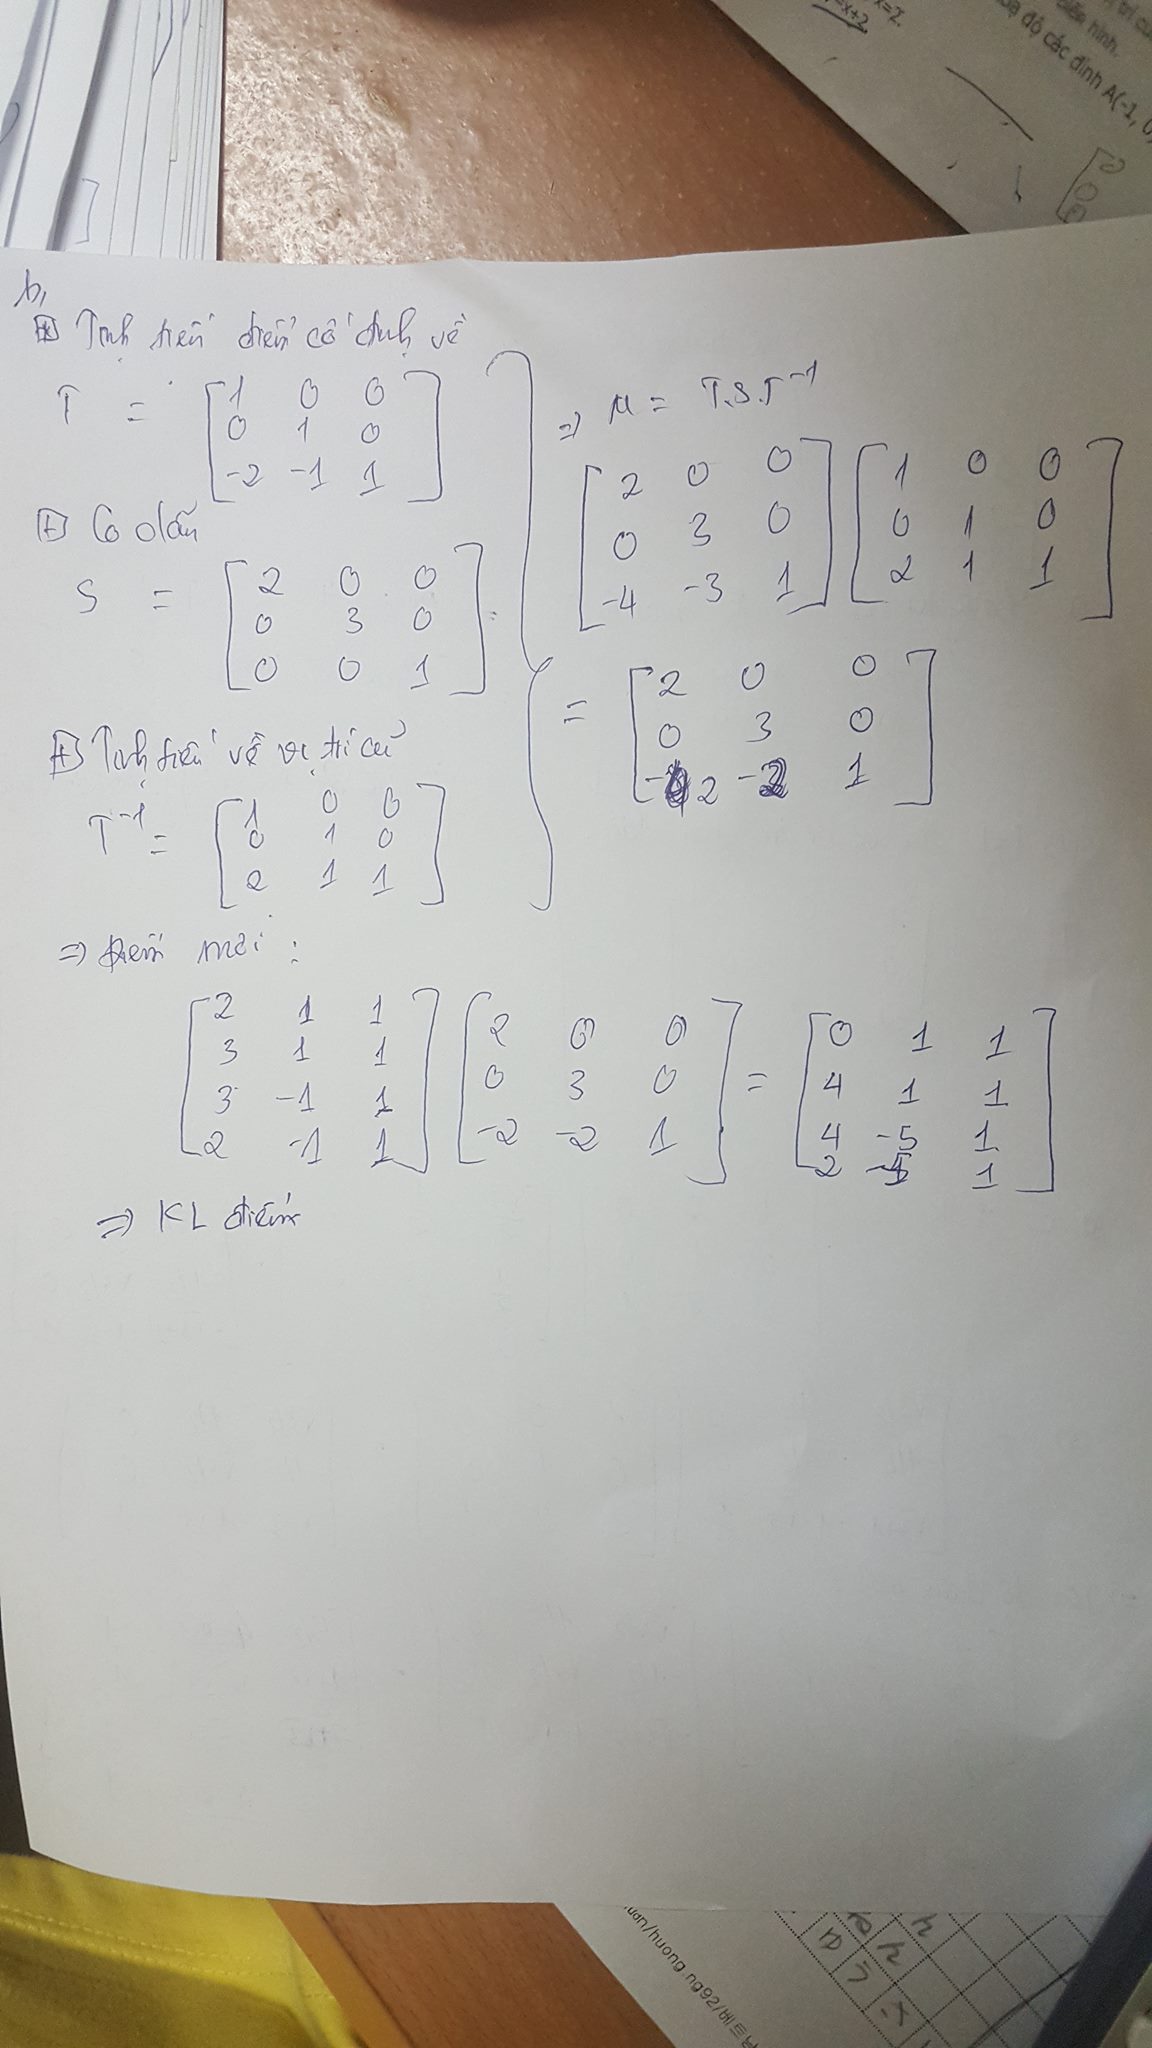 x=2
=x+2
trí củ
biến hình.
oạ độ các đỉnh A(-1, 0)
[2
0
b,
+ Tịnh tiến điểm cố định về
T = [1 0 0
0 1 0
-2 -1 1]
+ Co dãn
S = [2 0 0
0 3 0
0 0 1]
+ Tịnh tiến về vị trí cũ
T⁻¹ = [1 0 0
0 1 0
2 1 1]
=> M = T.S.T⁻¹
[2 0 0
0 3 0
-4 -3 1] [1 0 0
0 1 0
2 1 1]
= [2 0 0
0 3 0
-2 -2 1]
=> Điểm mới :
[2 1 1
3 1 1
3 -1 1
2 -1 1] [2 0 0
0 3 0
-2 -2 1] = [0 1 1
4 1 1
4 -5 1
2 -5 1]
=> KL điểm
uan/huong.ng92/베트남